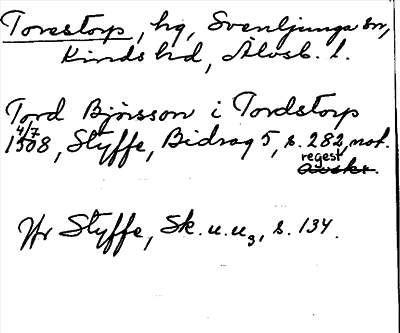 Torestorp, hg, Svenljunga sn,
Kinds hd, Älvsb. l.
Tord Björsson i Tordstorp
4/7
1508, Styffe, Bidrag 5, s. 282, not.
regest
avskr.
Jfr Styffe, Sk.u.u3, s. 134.